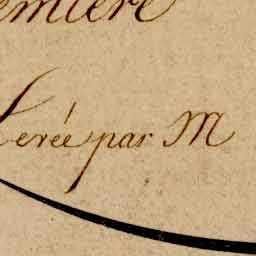 emiere
Levée par M